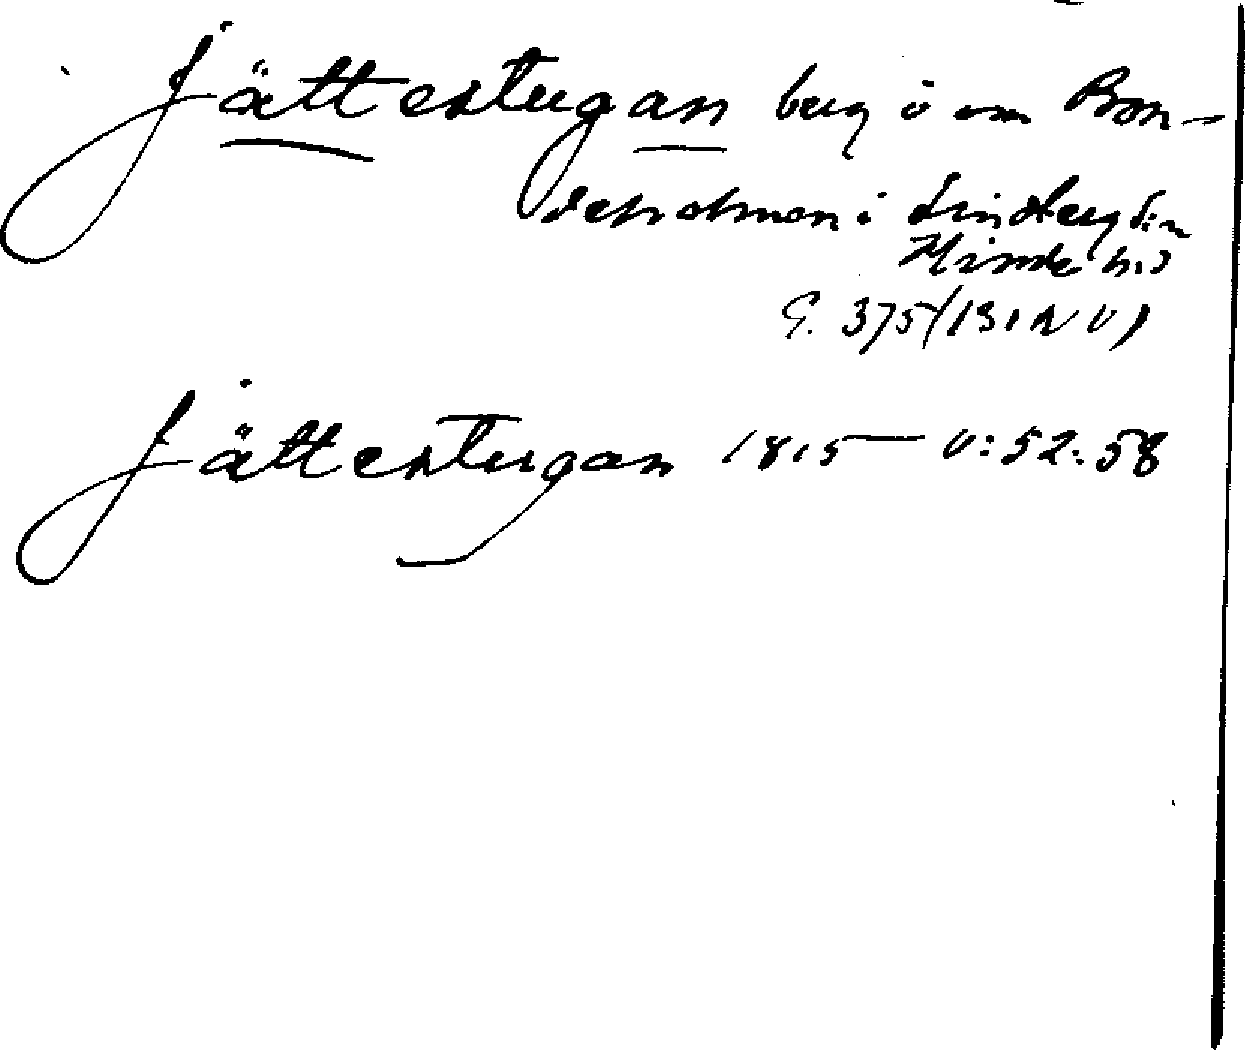 Jättestugan berg ö om Bon-
deholmen i Lindberg sn
Himle hd
G. 375 (131 N V)
Jättestugan 1815 — V:52:58